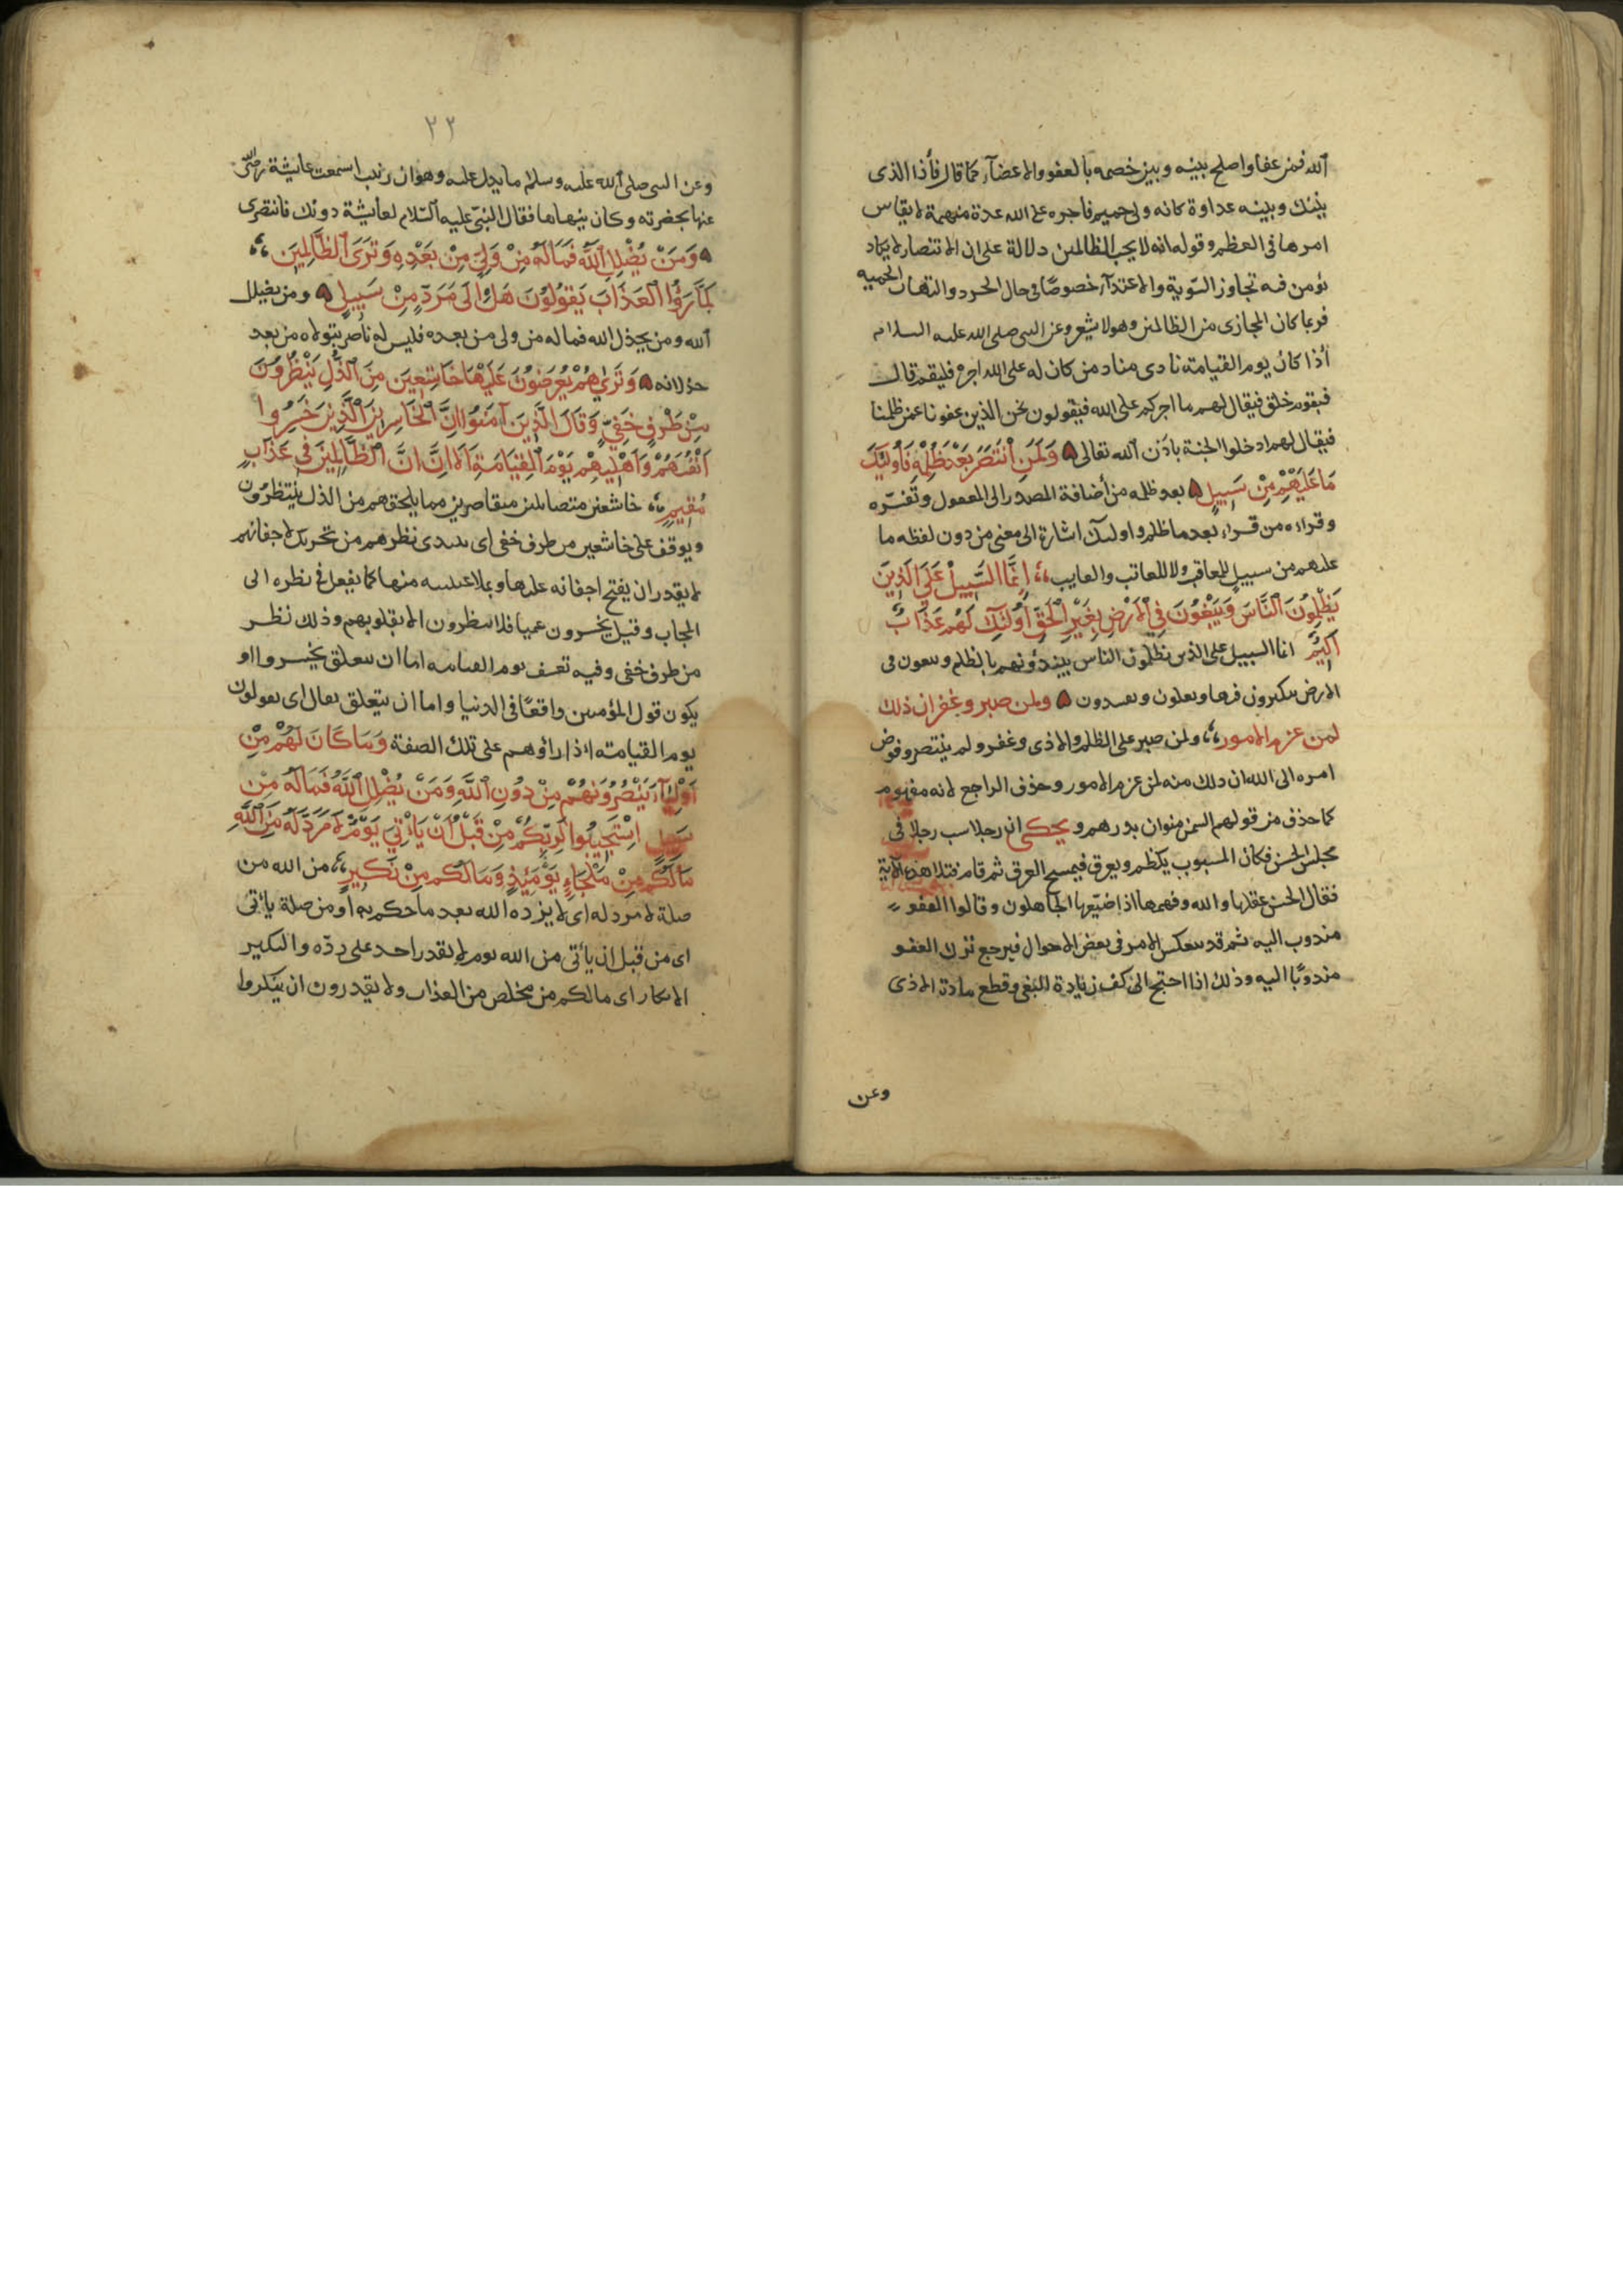 الله فمن عفا واصلح بينه وبين خصمه بالعفو والاغضآء كما قال فأذا الذى
بينك وبينه عداوة كانه ولى حميم فاجره على الله عدة مبهمة لا يقاس
امرها فى العظم وقوله انه لا يحب الظالمين دلالة على ان الانتصار لا يكاد
يؤمن فيه تجاوز السّوية والاعتدآء خصوصًا فى حال الحرد والتهاب الحميه
فربما كان المجازى من الظالمين وهو لا يشعر وعن النبى صلى الله عليه السلام
أذا كان يوم القيامة نادى مناد من كان له على الله اجره فليقم قال
فيقوم خلق فيقال لهم ما اجركم على الله فيقولون نحن الذين عفونا عمن ظلمنا
فيقال لهم ادخلوا الجنة باذن الله تعالى وَلَمَنِ انْتَصَرَ بَعْدَ ظُلْمِهِ فَأُولَئِكَ
مَا عَلَيْهِمْ مِنْ سَبِيلٍ بعد ظلمه من أضافة المصدر الى المفعول وتفسّره
وقراءه من قراء بعد ما ظلم واولئك اشارة الى معنى من دون لفظه ما
عليهم من سبيل للمعاقب ولا للعاتب والعايب إِنَّمَا السَّبِيلُ عَلَى الَّذِينَ
يَظْلِمُونَ النَّاسَ وَيَبْغُونَ فِي الْأَرْضِ بِغَيْرِ الْحَقِّ أُولَئِكَ لَهُمْ عَذَابٌ
اَلِيمٌ انما السبيل على الذين يظلمون الناس يبتدؤنهم بالظلم ويبغون فى
الارض يتكبرون فيها ويعلون ويفسدون ولمن صبر وغفر ان ذلك
لمن عزم الامور ولمن صبر على الظلم والاذى وغفر ولم ينتصر وفوض
امره الى الله ان ذلك منه لمن عزم الامور وحذف الراجع لانه مفهوم
كما حذف من قولهم السمن منوان بدرهم ويحكى ان رجلا سب رجلا فى
مجلس الحسن فكان المسبوب يكظم ويعرق فيمسح العرق ثم قام فتلا هذه الآية
فقال الحسن عقلها والله وفهمها اذا ضيّعها الجاهلون وقالوا العفو
مندوب اليه ثم قد ينعكس الامر فى بعض الاحوال فيرجع ترك العفو
مندوبًا اليه وذلك اذا احتج الى كف زيادة البغى وقطع مادة الاذى
وعن
٢٢
وعن النبى صلى الله عليه وسلم ما يدل عليه وهو ان زينب اسمعت عايشة رضى
عنها بحضرته وكان ينهاها فقال النبى عليه السّلام لعايشة دونك فانتصرى
وَمَنْ يُضْلِلِ اللَّهُ فَمَالَهُ مِنْ وَلِيٍّ مِنْ بَعْدِهِ وَتَرَى الظَّالِمِينَ
لَمَّا رَؤُا الْعَذَابَ يَقُولُونَ هَلْ اِلَى مَرَدٍّ مِنْ سَبِيلٍ ومن يضلل
الله ومن يخذل الله فماله من ولى من بعده فليس له ناصر يتولاه من بعد
خذلانه وَتَرَىٰهُمْ يُعْرَضُونَ عَلَيْهَا خَاشِعِينَ مِنَ الذُّلِّ يَنْظُرُونَ
مِنْ طَرْفٍ خَفِيٍّ وَقَالَ الَّذِينَ آمَنُوا اِنَّ الْخَاسِرِينَ الَّذِينَ خَسِرُوا
اَنْفُسَهُمْ وَاَهْلِيهِمْ يَوْمَ الْقِيَامَةِ اَلَا اِنَّ الظَّالِمِينَ فِي عَذَابٍ
مُقِيمٍ خاشعين متضائلين متقاصرين مما يلحقهم من الذل ينظرون
ويوقف على خاشعين من طرف خفى اى يبتدى نظرهم من تحريك لاجفانهم
لا يقدر ان يفتح اجفانه عليها ويملا عينيه منها كما يفعل فى نظره الى
المحاب وقيل يحشرون عميا فلا ينظرون الا بقلوبهم وذلك نظر
من طرف خفى وفيه تعسف يوم القيامه اما ان يتعلق بخسروا او
يكون قول المؤمنين واقعًا فى الدنيا واما ان يتعلق بقال اى يقولون
يوم القيامة اذا راؤهم على تلك الصفة وَمَا كَانَ لَهُمْ مِنْ
اَوْلِيَآءَ يَنْصُرُونَهُمْ مِنْ دُونِ اللَّهِ وَمَنْ يُضْلِلِ اللَّهُ فَمَالَهُ مِنْ
سَبِيلٍ اِسْتَجِيبُوا لِرَبِّكُمْ مِنْ قَبْلِ اَنْ يَاْتِيَ يَوْمٌ لَا مَرَدَّ لَهُ مِنَ اللَّهِ
مَالَكُمْ مِنْ مَلْجَاءٍ يَوْمَئِذٍ وَمَالَكُمْ مِنْ نَكِيرٍ من الله من
صلة لا مرد له اى لا يرده الله بعد ما حكم به او من صلة يأتى
اى من قبل ان يأتى من الله يوم لا يقدر احد على ردّه والنكير
الانكار اى مالكم من مخلص من العذاب ولا تقدرون ان تنكروا